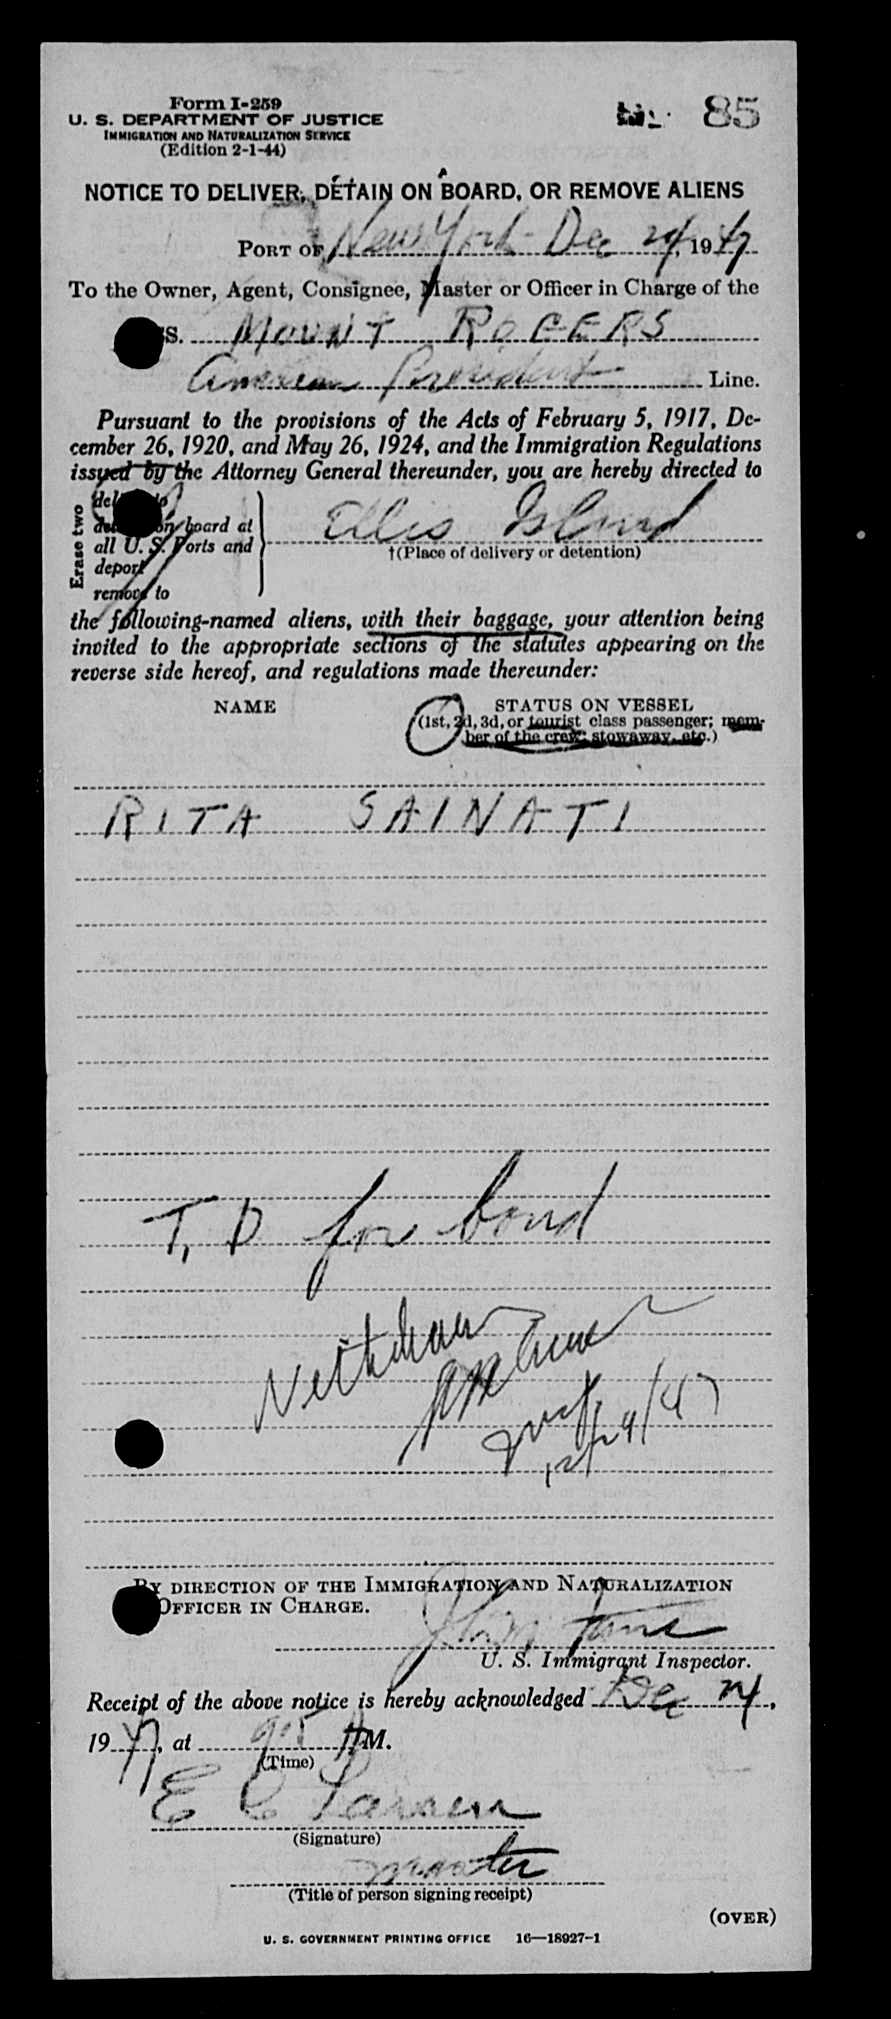 Form I-259
U. S. DEPARTMENT OF JUSTICE
IMMIGRATION AND NATURALIZATION SERVICE
(Edition 2-1-44)
85
NOTICE TO DELIVER, DETAIN ON BOARD, OR REMOVE ALIENS
PORT OF New York Dec 24, 1947
To the Owner, Agent, Consignee, Master or Officer in Charge of the
SS. MOUNT ROGERS
American President Line.
Pursuant to the provisions of the Acts of February 5, 1917, De-
cember 26, 1920, and May 26, 1924, and the Immigration Regulations
issued by the Attorney General thereunder, you are hereby directed to
Erase two
on board at
all U. S. Ports and
deport
remove to
Ellis Island
†(Place of delivery or detention)
the following-named aliens, with their baggage, your attention being
invited to the appropriate sections of the statutes appearing on the
reverse side hereof, and regulations made thereunder:
NAME
STATUS ON VESSEL
(1st, 2d, 3d, or tourist class passenger; mem-
ber of the crew; stowaway, etc.)
RITA SAINATI
T. D for bond
Withdrawn
12/24/47
BY DIRECTION OF THE IMMIGRATION AND NATURALIZATION
OFFICER IN CHARGE.
U. S. Immigrant Inspector.
Receipt of the above notice is hereby acknowledged Dec 24,
1947, at 915 AM.
(Time)
E C Larsen
(Signature)
master
(Title of person signing receipt)
(OVER)
U. S. GOVERNMENT PRINTING OFFICE 16—18927-1